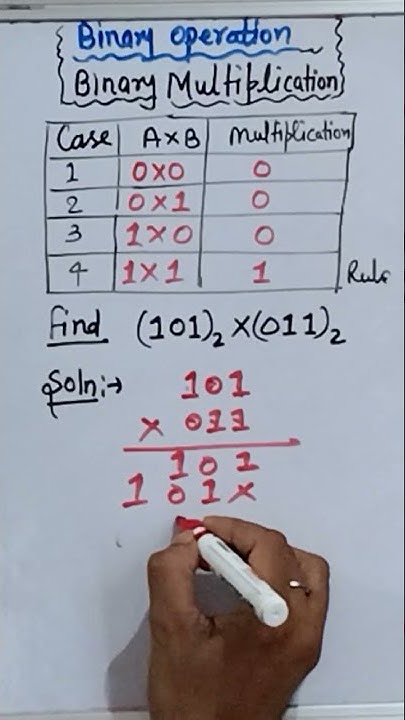 Binary operation
Binary Multiplication
Case A×B Multiplication
1 0×0 0
2 0×1 0
3 1×0 0
4 1×1 1 Rule
find (101)₂×(011)₂
Soln:→
101
× 011
101
101×